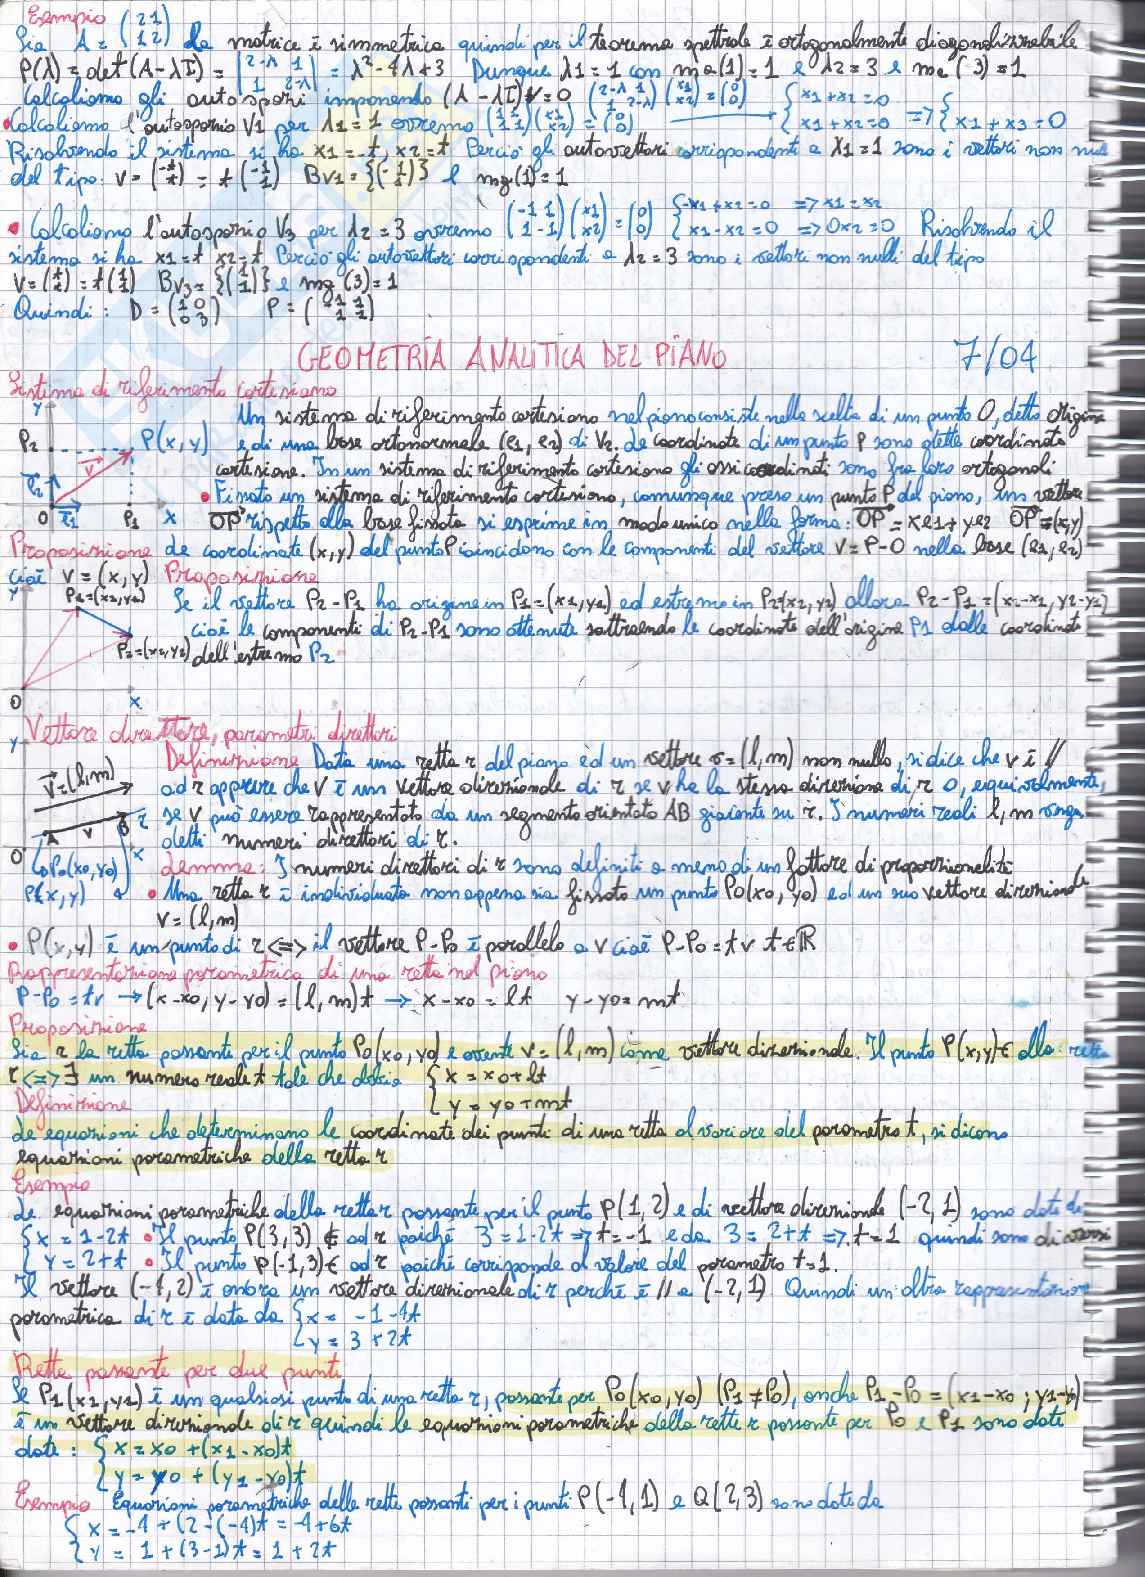 Esempio
Sia A = (2 1 / 1 2) La matrice è simmetrica quindi per il teorema spettrale è ortogonalmente diagonalizzabile
P(λ) = det(A-λI) = |2-λ 1 / 1 2-λ| = λ²-4λ+3 Dunque λ1=1 con ma(1)=1 e λ2=3 e ma(3)=1
Calcoliamo gli autospazi imponendo (A-λI)v=0 (2-λ 1 / 1 2-λ)(x1 / x2)=(0 / 0) → {x1+x2=0 / x1+x2=0 => {x1+x3=0
• Calcoliamo l'autospazio V1 per λ1=1 ovvero (1 1 / 1 1)(x1 / x2)=(0 / 0)
Risolvendo il sistema si ha x1=-t, x2=t Perciò gli autovettori corrispondenti a λ1=1 sono i vettori non nulli
del tipo: v=(-t / t) = t(-1 / 1) Bv1={(-1 / 1)} e mg(1)=1
• Calcoliamo l'autospazio V3 per λ2=3 ovvero (-1 1 / 1 -1)(x1 / x2)=(0 / 0) {-x1+x2=0 => x1=x2 / x1-x2=0 => 0x2=0 Risolvendo il
sistema si ha x1=t x2=t Perciò gli autovettori corrispondenti a λ2=3 sono i vettori non nulli del tipo
v=(t / t)=t(1 / 1) Bv3={(1 / 1)} e mg(3)=1
Quindi: D=(1 0 / 0 3) P=(-1 1 / 1 1)
GEOMETRIA ANALITICA DEL PIANO 7/04
Sistema di riferimento cartesiano
y P2 P(x,y) v e2 0 e1 P1 x
Un sistema di riferimento cartesiano nel piano consiste nella scelta di un punto O, detto origine
e di una base ortonormale (e1, e2) di V2. Le coordinate di un punto P sono dette coordinate
cartesiane. In un sistema di riferimento cartesiano gli assi coordinati sono fra loro ortogonali
• Fissato un sistema di riferimento cartesiano, comunque preso un punto P del piano, un vettore
OP rispetto alla base fissata si esprime in modo unico nella forma: OP = xe1+ye2 OP=(x,y)
Proposizione Le coordinate (x,y) del punto P coincidono con le componenti del vettore V=P-O nella base (e1,e2)
cioè V=(x,y) Proposizione
y P1=(x1,y1) P2=(x2,y2) O x
Se il vettore P2-P1 ha origine in P1=(x1,y1) ed estremo in P2(x2,y2) allora P2-P1=(x2-x1, y2-y1)
cioè le componenti di P2-P1 sono ottenute sottraendo le coordinate dell'origine P1 dalle coordinate
dell'estremo P2
Vettore direttore, parametri direttori
y V=(l,m) A v B r O Po(xo,yo) x P(x,y)
Definizione Data una retta r del piano ed un vettore v=(l,m) non nullo, si dice che v è //
ad r oppure che V è un vettore direzionale di r se v ha la stessa direzione di r o, equivalentemente,
se V può essere rappresentato da un segmento orientato AB giacente su r. I numeri reali l, m vengo
detti numeri direttori di r.
Lemma: I numeri direttori di r sono definiti a meno di un fattore di proporzionalità
• Una retta r è individuata non appena sia fissato un punto Po(xo,yo) ed un suo vettore direzionale
V=(l,m)
• P(x,y) è un punto di r <=> il vettore P-Po è parallelo a V cioè P-Po=tv t∈ℝ
Rappresentazione parametrica di una retta nel piano
P-Po=tv → (x-xo, y-yo)=(l,m)t → x-xo=lt y-yo=mt
Proposizione
Sia r la retta passante per il punto Po(xo,yo) e avente v=(l,m) come vettore direzionale. Il punto P(x,y)∈ alla retta
r <=> ∃ un numero reale t tale che abbia {x=xo+lt
y=yo+mt
Definizione
Le equazioni che determinano le coordinate dei punti di una retta al variare del parametro t, si dicono
equazioni parametriche della retta r
Esempio
Le equazioni parametriche della retta r passante per il punto P(1,2) e di vettore direzionale (-2,1) sono date da
{x=1-2t • Il punto P(3,3) ∉ ad r poiché 3=1-2t => t=-1 e da 3=2+t => t=1 quindi sono diversi
y=2+t • Il punto P(-1,3)∈ ad r poiché corrisponde al valore del parametro t=1.
Il vettore (-4,2) è ancora un vettore direzionale di r perché è // a (-2,1). Quindi un'altra rappresentazione
parametrica di r è data da {x=-1-4t
y=3+2t
Retta passante per due punti
Se P1(x1,y1) è un qualsiasi punto di una retta r, passante per Po(xo,yo) (P1≠Po), anche P1-Po=(x1-xo; y1-yo)
è un vettore direzionale di r quindi le equazioni parametriche della retta r passante per Po e P1 sono date
date: {x=xo+(x1-xo)t
y=yo+(y1-yo)t
Esempio Equazioni parametriche della retta passanti per i punti P(-4,1) e Q(2,3) sono date da
{x=-4+(2-(-4)t=-4+6t
y=1+(3-1)t=1+2t